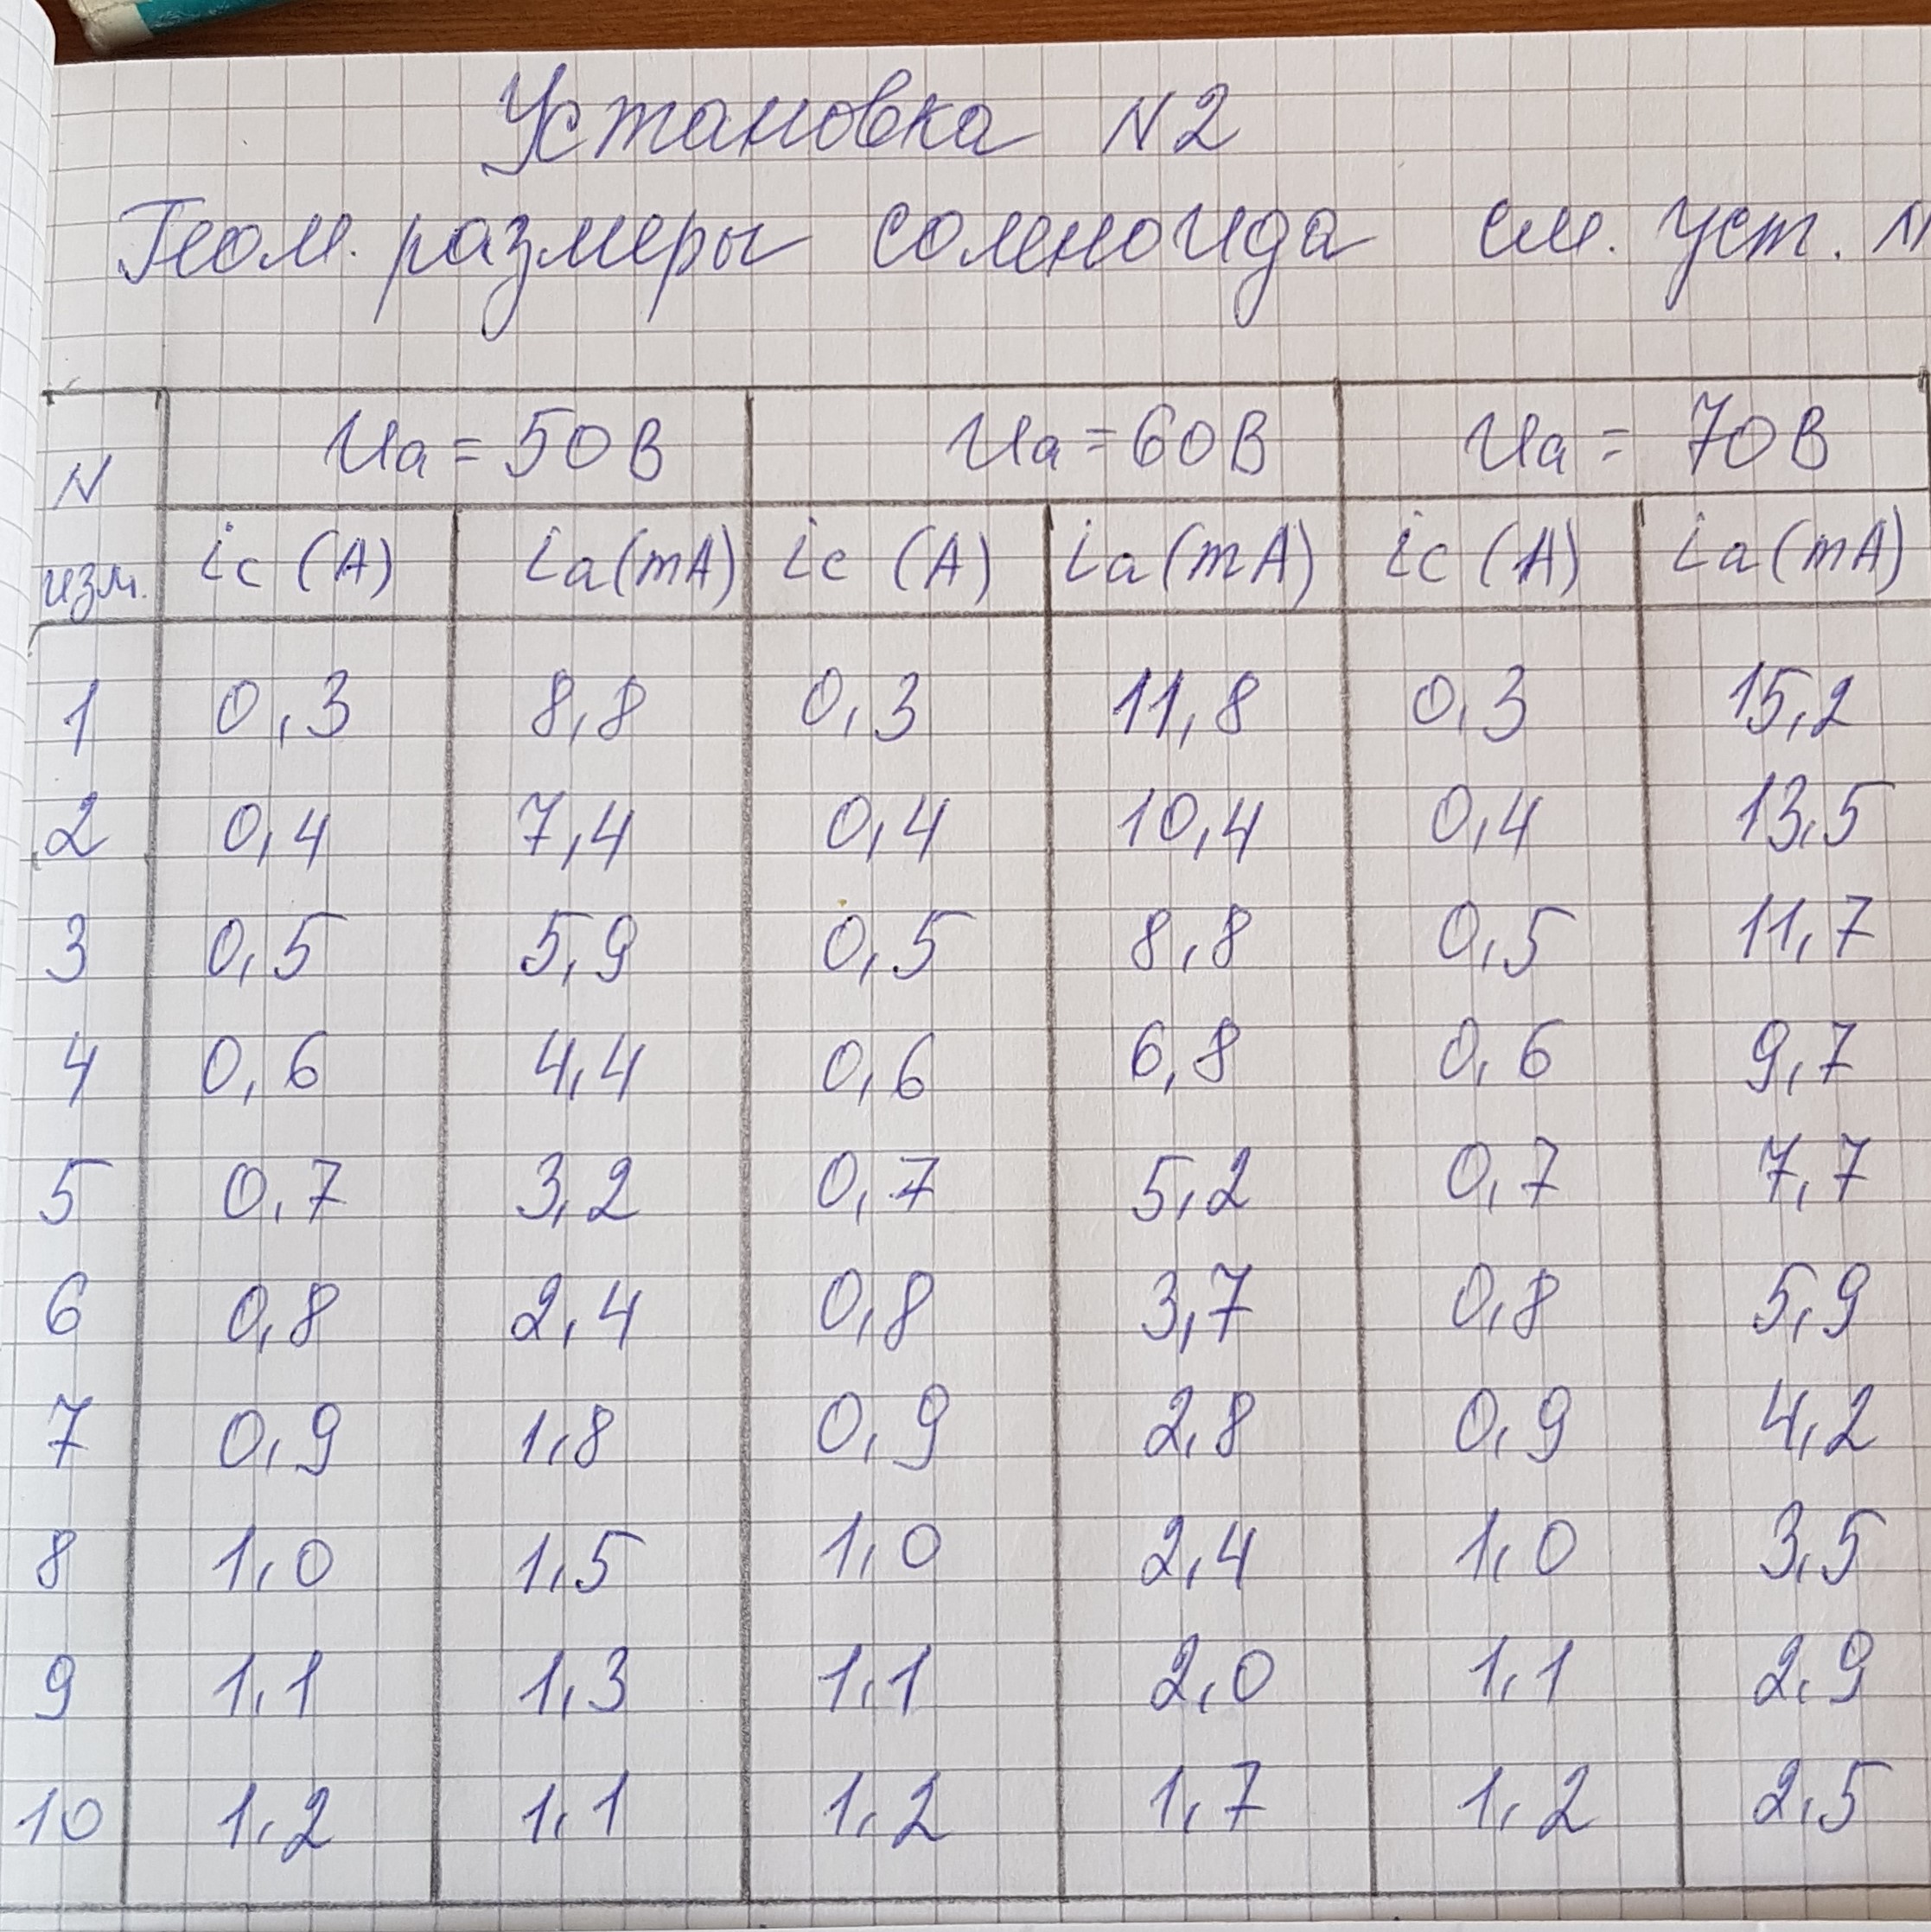 Установка N2
Геом. размеры соленоида см. уст. N
N изм. Ua = 50В Ua = 60В Ua = 70В
ic (A) ia (mA) ic (A) ia (mA) ic (A) ia (mA)
1 0,3 8,8 0,3 11,8 0,3 15,2
2 0,4 7,4 0,4 10,4 0,4 13,5
3 0,5 5,9 0,5 8,8 0,5 11,7
4 0,6 4,4 0,6 6,8 0,6 9,7
5 0,7 3,2 0,7 5,2 0,7 7,7
6 0,8 2,4 0,8 3,7 0,8 5,9
7 0,9 1,8 0,9 2,8 0,9 4,2
8 1,0 1,5 1,0 2,4 1,0 3,5
9 1,1 1,3 1,1 2,0 1,1 2,9
10 1,2 1,1 1,2 1,7 1,2 2,5